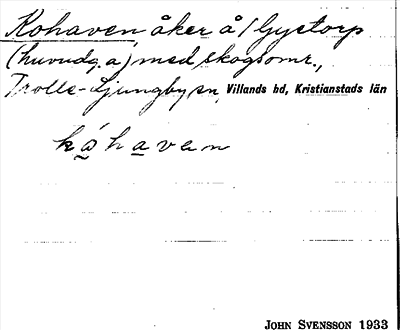 Kohaven, åker å / Gystorp
(huvudg. a) med skogsomr.,
Trolle-Ljungby sn, Villands hd, Kristianstads län
kåhaven
JOHN SVENSSON 1933